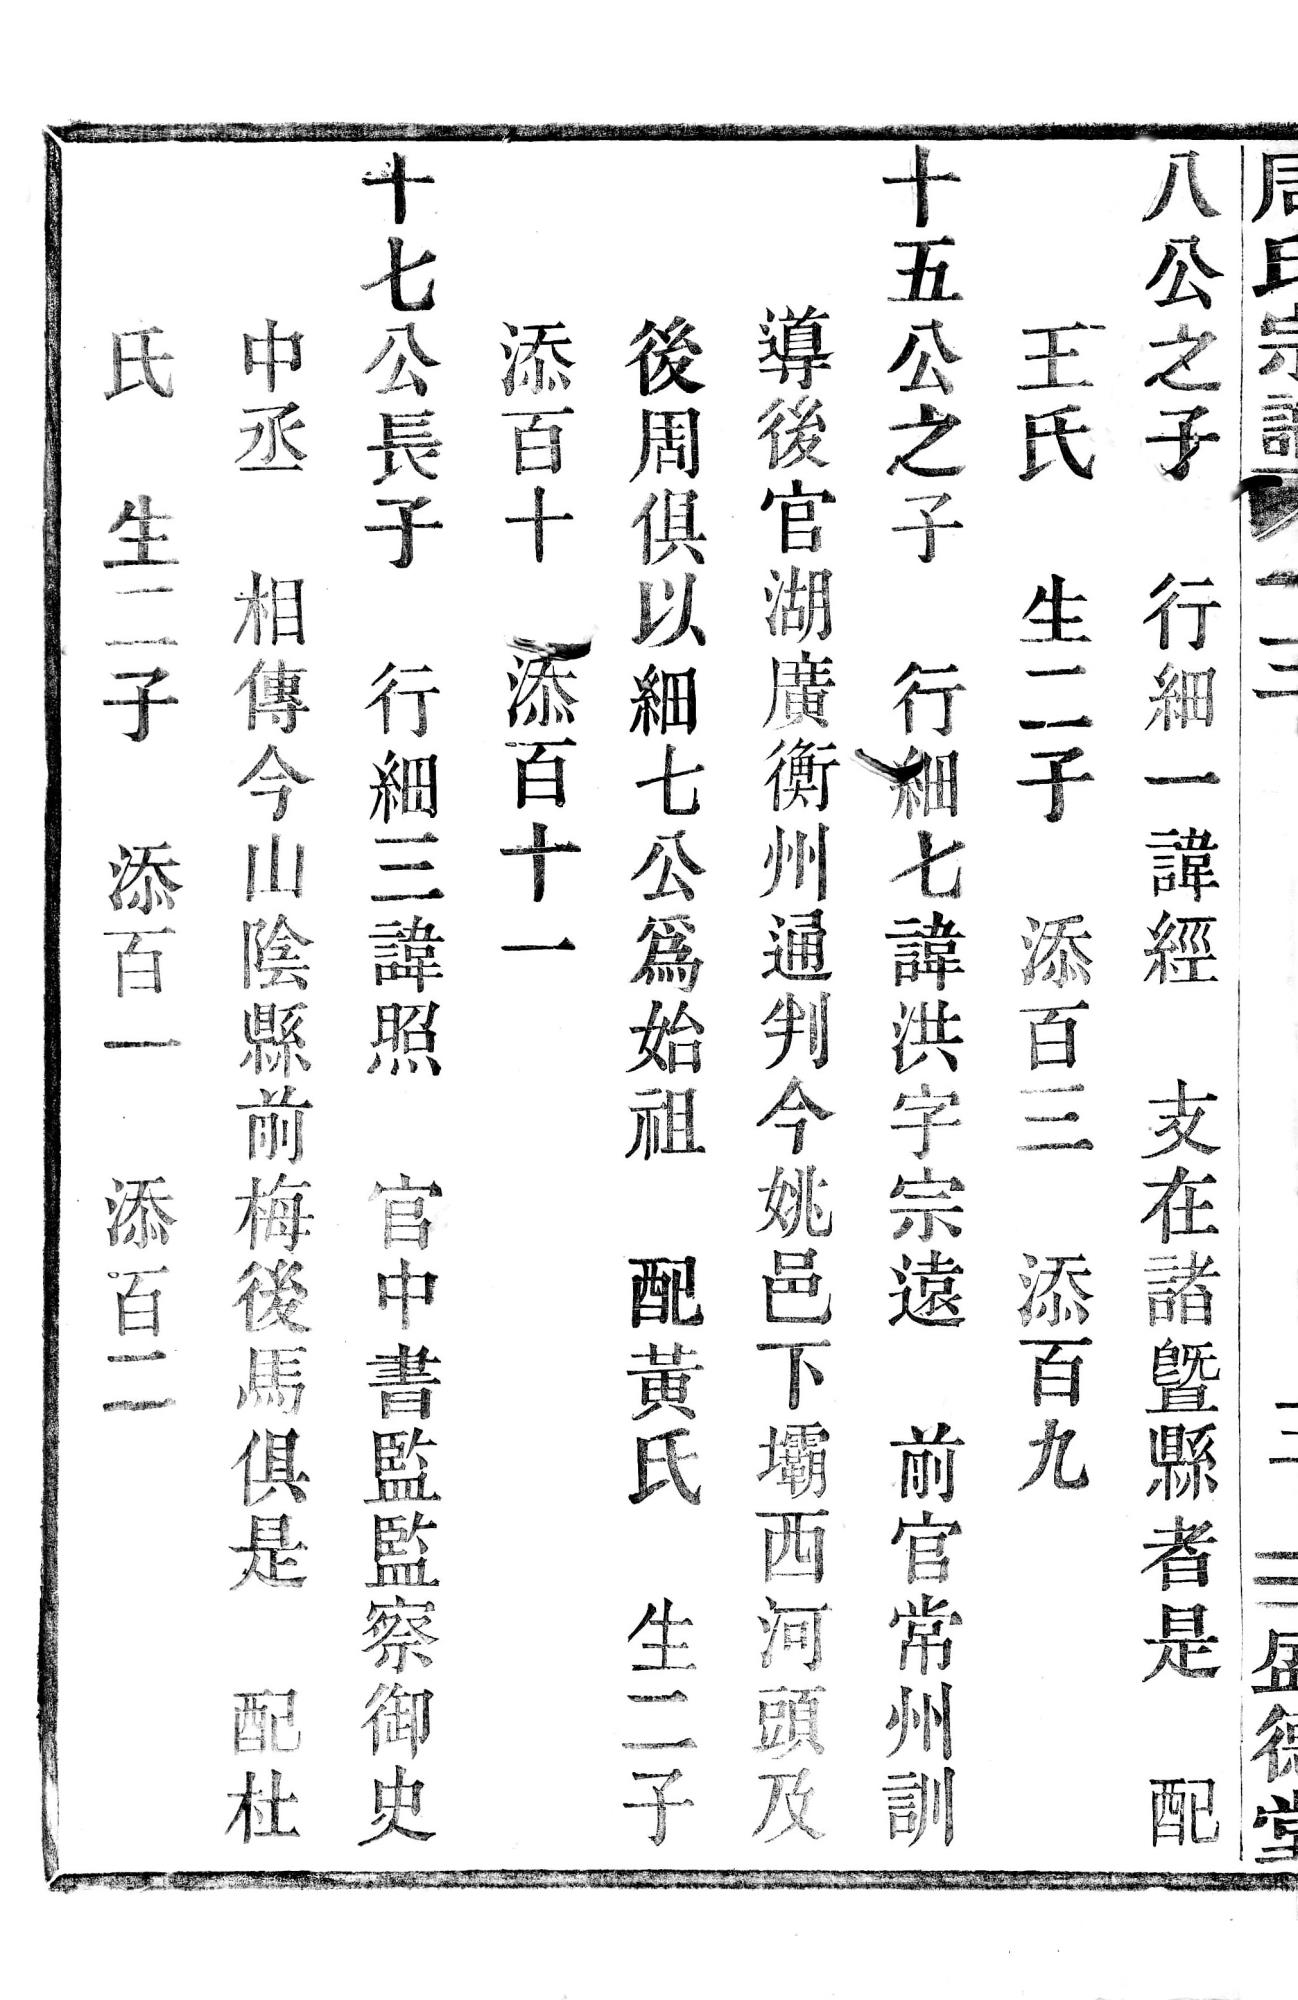 周氏宗譜
盛德堂
八公之子　行細一諱經　支在諸暨縣者是　配
王氏　生二子　添百三　添百九
十五公之子　行細七諱洪字宗遠　前官常州訓
導後官湖廣衡州通判今姚邑下壩西河頭及
後周俱以細七公爲始祖　配黃氏　生二子
添百十　添百十一
十七公長子　行細三諱照　官中書監監察御史
中丞　相傳今山陰縣前梅後馬俱是　配杜
氏　生二子　添百一　添百二